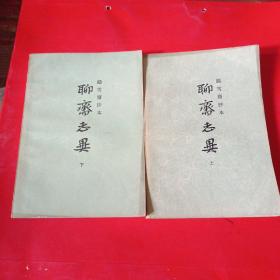 鑄雪齋抄本
聊齋志異
下
鑄雪齋抄本
聊齋志異
上